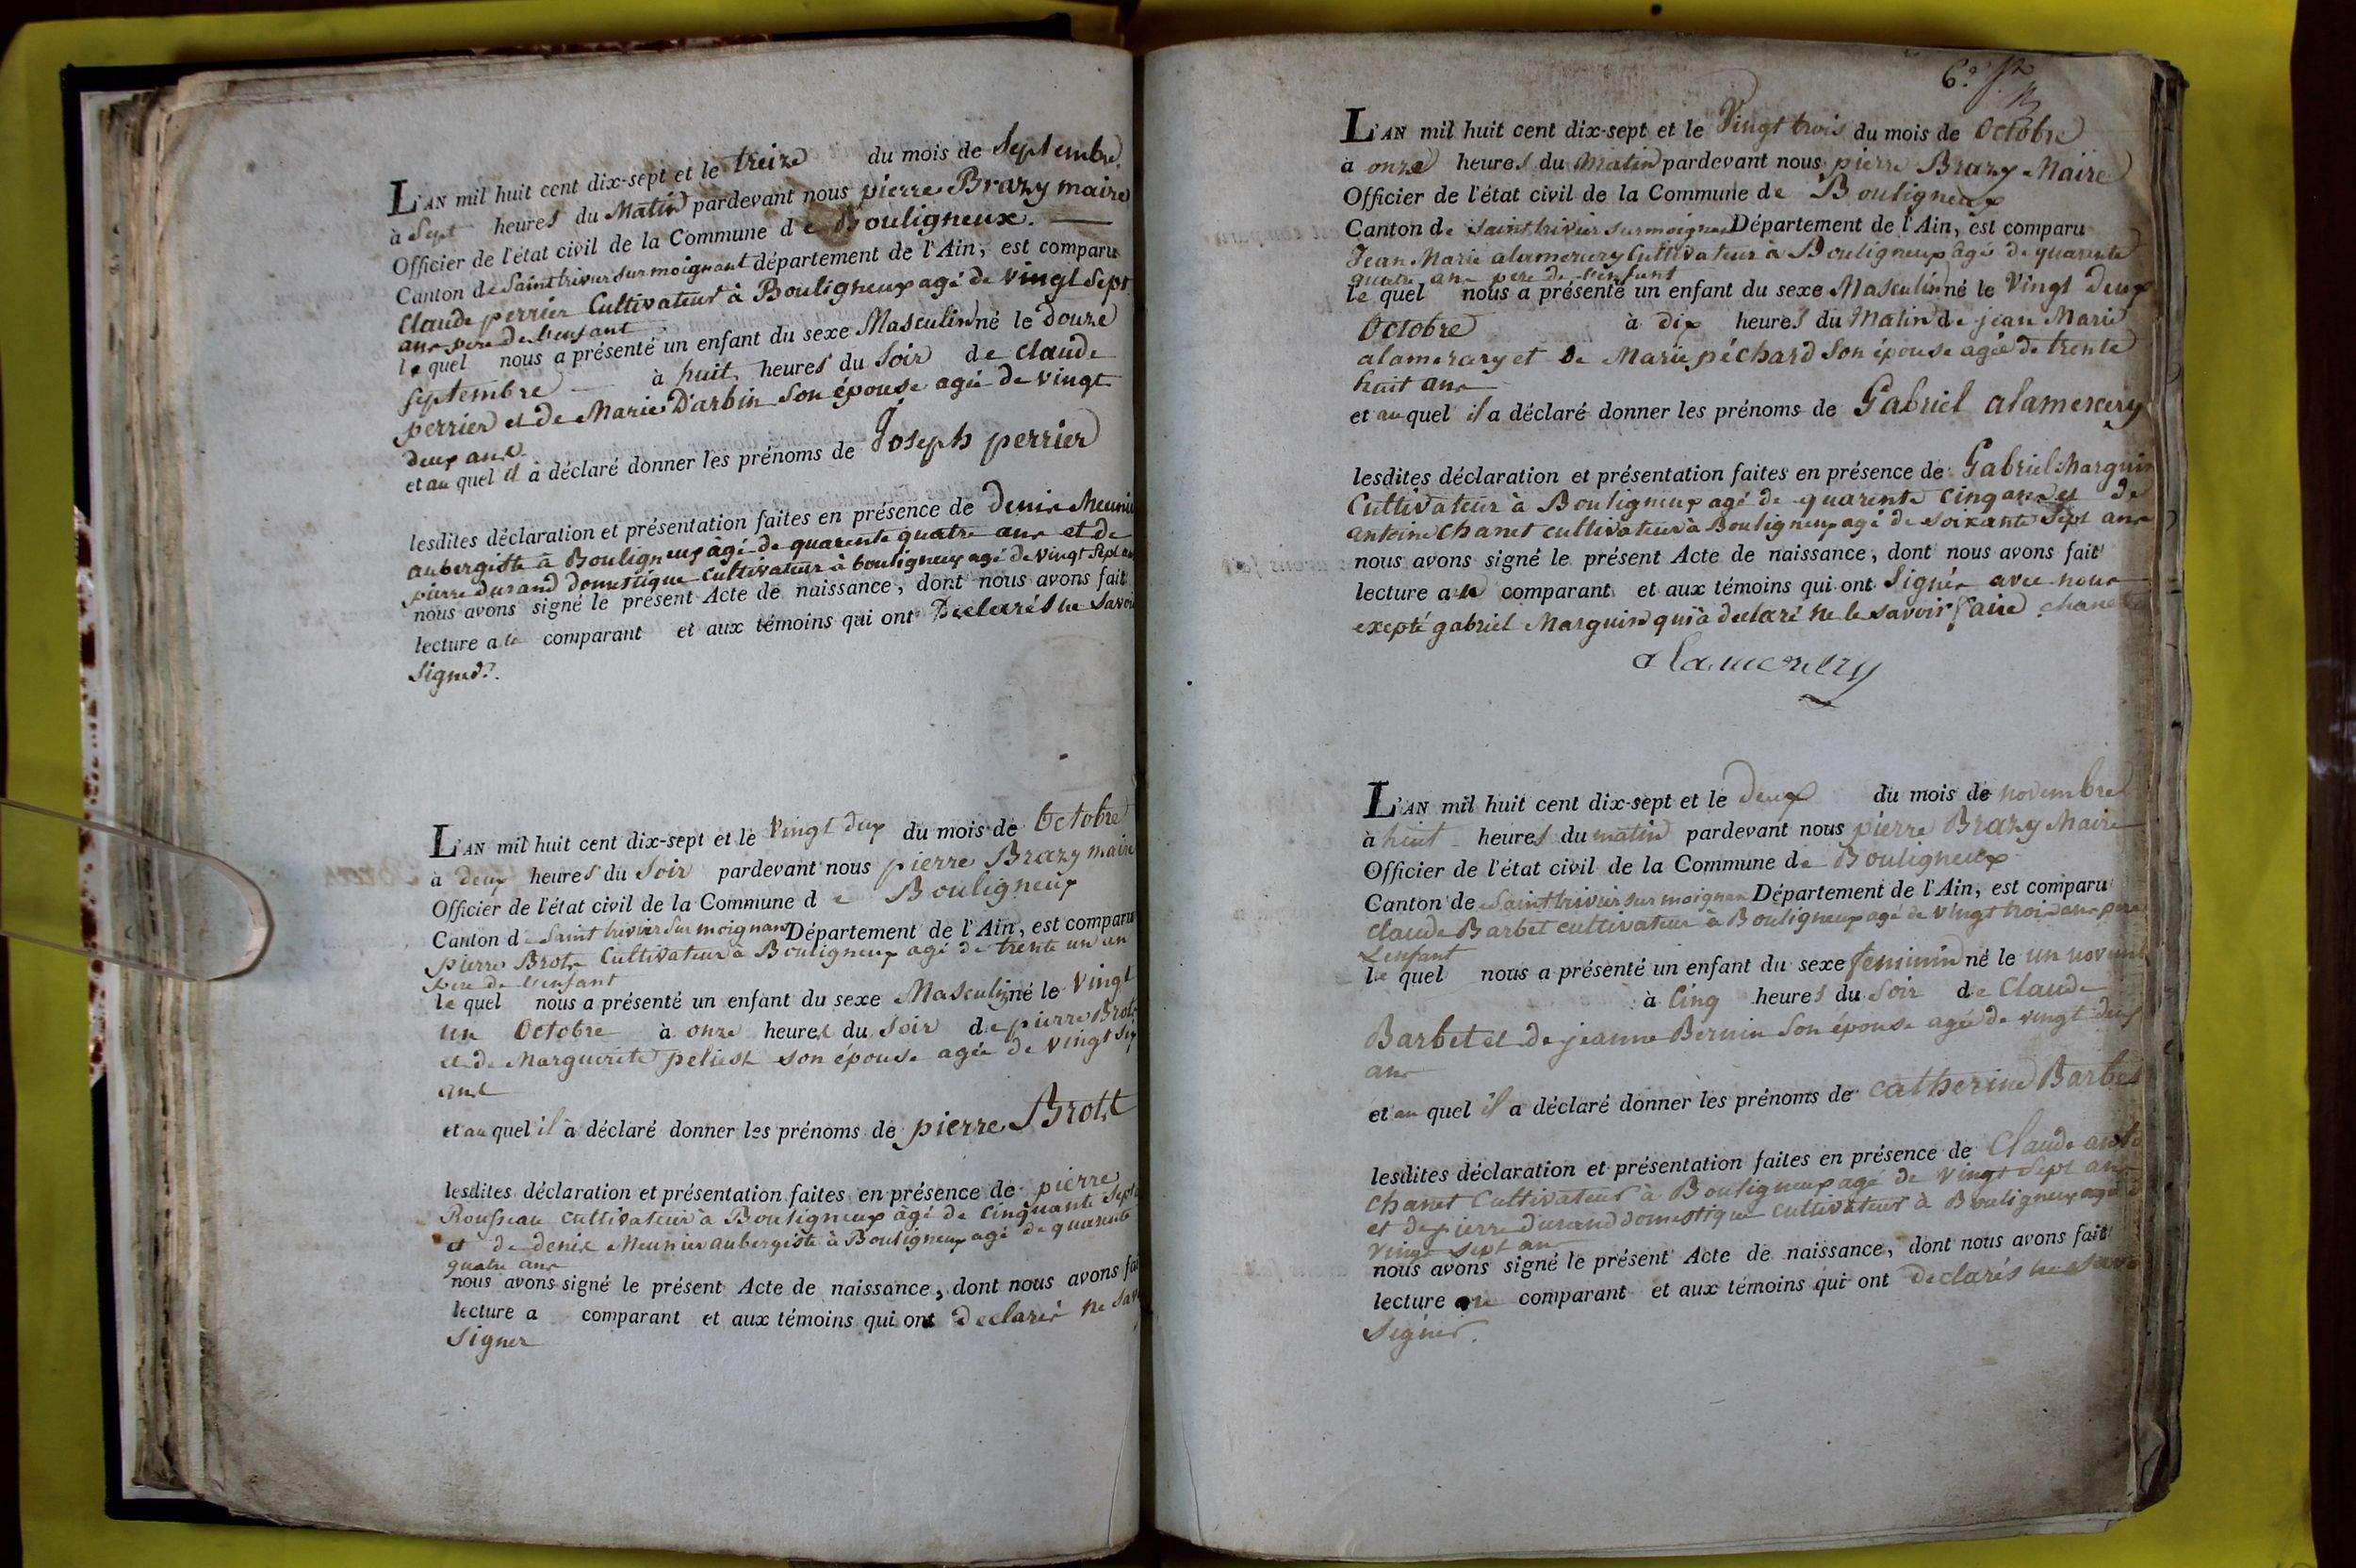 L'AN mil huit cent dix-sept et le treize du mois de Septembre
à Sept heures du Matin pardevant nous pierre Brazy maire
Officier de l'état civil de la Commune de Bouligneux.
Canton de Saint trivier sur moignant département de l'Ain, est comparu
Claude perrier Cultivateur à Bouligneux agé de vingt Sept
ans pere de l'enfant
le quel nous a présenté un enfant du sexe Masculin né le douze
septembre à huit heures du Soir de claude
perrier et de Marie Darbin son épouse agée de vingt
deux ans
et au quel il a déclaré donner les prénoms de Joseph perrier
lesdites déclaration et présentation faites en présence de denis Meunier
aubergiste à Bouligneux âgé de quarente quatre ans et de
pierre durand domestique cultivateur à bouligneux agé de vingt Sept ans
nous avons signé le présent Acte de naissance, dont nous avons fait
lecture a le comparant et aux témoins qui ont Declarés ne Savoir
Signer.
L'AN mil huit cent dix-sept et le vingt deux du mois de Octobre
à deux heures du Soir pardevant nous pierre Brazy maire
Officier de l'état civil de la Commune de Bouligneux
Canton de Saint trivier Sur moignans Département de l'Ain, est comparu
pierre Brott Cultivateur à Bouligneux agé de trente un an
pere de l'enfant
le quel nous a présenté un enfant du sexe Masculin né le Vingt
un Octobre à onze heures du Soir de pierre Brott
et de Marguerite son épouse agée de vingt
ans
et au quel il a déclaré donner les prénoms de pierre Brott
lesdites déclaration et présentation faites en présence de pierre
Rousseau cultivateur à Bouligneux âgé de Cinquante Sept
et de denis Meunier aubergiste à Bouligneux agé de quarente
quatre ans
nous avons signé le présent Acte de naissance, dont nous avons fait
lecture a comparant et aux témoins qui ont declarés ne Savoir
Signer
6.
L'AN mil huit cent dix-sept et le Vingt trois du mois de Octobre
à onze heures du Matin pardevant nous pierre Brazy Maire
Officier de l'état civil de la Commune de Bouligneux
Canton de Saint trivier sur moignans Département de l'Ain, est comparu
Jean Marie alamercery Cultivateur à Bouligneux agé de quarente
quatre ans pere de l'enfant
le quel nous a présenté un enfant du sexe Masculin né le Vingt deux
Octobre à dix heures du Matin de jean Marie
alamercery et de Marie péchard Son épouse agée de trente
huit ans
et au quel il a déclaré donner les prénoms de Gabriel alamercery
lesdites déclaration et présentation faites en présence de Gabriel Marguin
Cultivateur à Bouligneux agé de quarente cinq ans et de
antoine Chanet cultivateur à Bouligneux agé de Soixante Sept ans
nous avons signé le présent Acte de naissance, dont nous avons fait
lecture au comparant et aux témoins qui ont Signés avec nous
excepté gabriel Marguin qui à declaré ne le savoir faire chanet
alamercery
L'AN mil huit cent dix-sept et le deux du mois de novembre
à huit heures du matin pardevant nous pierre Brazy Maire
Officier de l'état civil de la Commune de Bouligneux
Canton de Saint trivier sur moignans Département de l'Ain, est comparu
Claude Barbet cultivateur à Bouligneux agé de vingt trois ans pere
L'enfant
le quel nous a présenté un enfant du sexe feminin né le un novembre
à Cinq heures du Soir de Claude
Barbet et de jeanne Bernin Son épouse agée de vingt deux
ans
et au quel il a déclaré donner les prénoms de catherine Barbet
lesdites déclaration et présentation faites en présence de Claude
chanet Cultivateur à Bouligneux agé de vingt Sept ans
et de pierre durand domestique cultivateur à Bouligneux agé
vingt sept ans
nous avons signé le présent Acte de naissance, dont nous avons fait
lecture au comparant et aux témoins qui ont declarés ne Savoir
Signer.